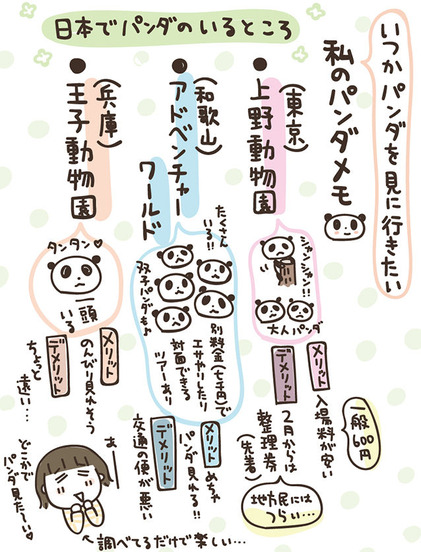 日本でパンダのいるところ
いつかパンダを見に行きたい
私のパンダメモ
●(東京)
上野動物園
シャンシャン!!
大人パンダ
メリット
入場料が安い
一般600円
デメリット
2月からは
整理券
(先着)
地方民には
つらい…
●(和歌山)
アドベンチャー
ワールド
たくさん
いる!!
双子パンダもよ
別料金(七千円)で
エサやりしたり
対面できる
ツアーあり
メリット
めちゃ
パンダ見れる!!
デメリット
交通の便が悪い
●(兵庫)
王子動物園
タンタン♡
一頭
いる
メリット
のんびり見れそう
デメリット
ちょっと
遠い…
あー
どこかで
パンダ見たーい♡
←調べてるだけで楽しい…